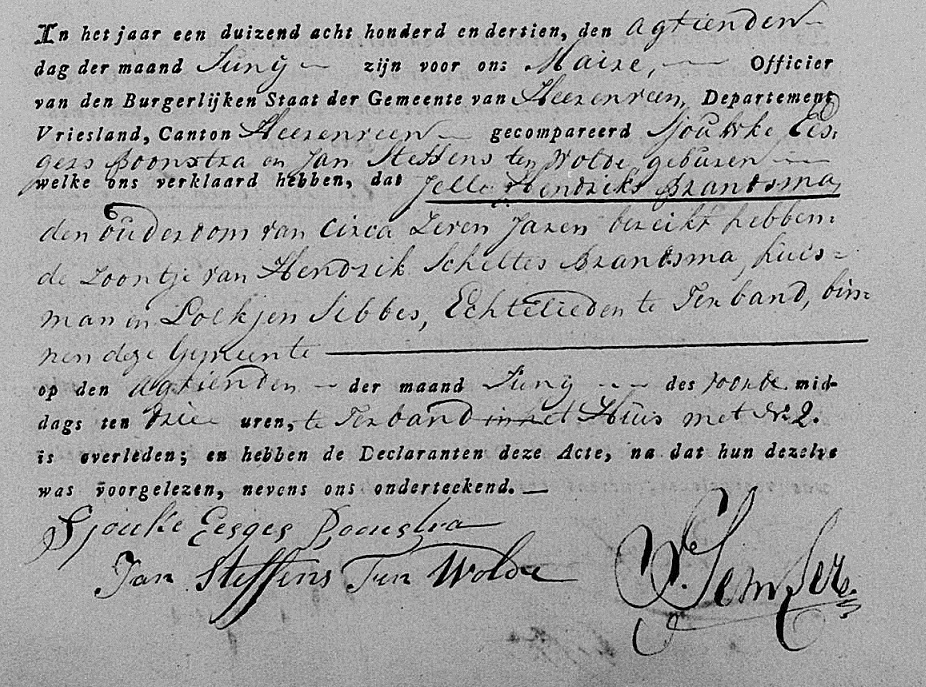 In het jaar een duizend acht honderd en dertien, den agtienden
dag der maand Junÿ zijn voor ons Maire, Officier
van den Burgerlijken Staat der Gemeente van Heerenveen, Departement
Vriesland, Canton Heerenveen gecompareerd Sjoukke Ees-
ges Poonstra en Jan Steffens ten Wolde, geburen
welke ons verklaard hebben, dat Jelle Hendriks Brantsma,
den ouderdom van circa zeven Jaren bereikt hebben-
de zoontje van Hendrik Scheltes Brantsma, huis-
man en Loekjen Sibbes, Echtelieden te Terband, bin-
nen deze Gemeente
op den agtienden der maand Junÿ des voorde mid-
dags ten drie uren, te Terband in het Huis met N. 2.
is overleden; en hebben de Declaranten deze Acte, na dat hun dezelve
was voorgelezen, nevens ons onderteekend.
Sjouke Eesges Poonstra
Jan Steffens Ten Wolde